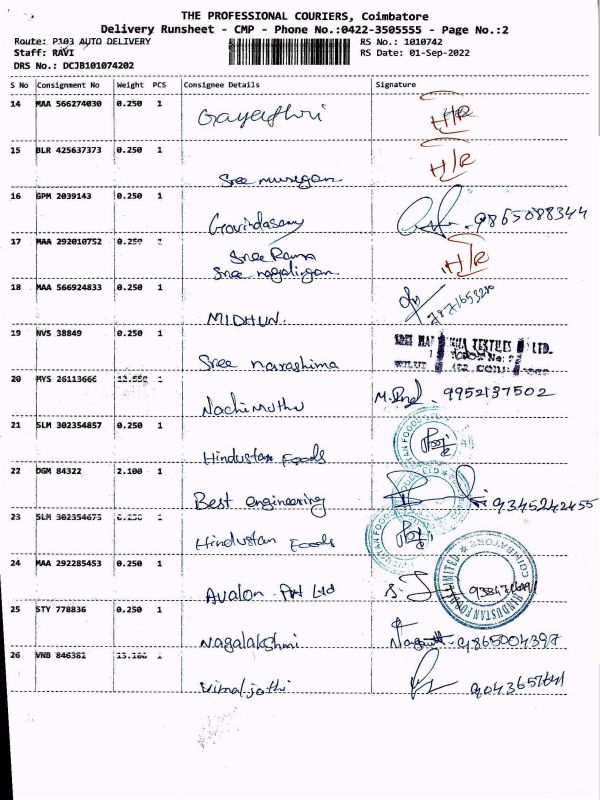 THE PROFESSIONAL COURIERS, Coimbatore
Delivery Runsheet - CMP - Phone No.:0422-3505555 - Page No.:2
Route: P103 AUTO DELIVERY RS No.: 1010742
Staff: RAVI RS Date: 01-Sep-2022
DRS No.: DCJB101074202
S No Consignment No Weight PCS Consignee Details Signature
14 MAA 566274030 0.250 1 Gayathri H/R
15 BLR 425637373 0.250 1 Sree murugan H/R
16 GPM 2039143 0.250 1 Govindasamy 9865088344
17 MAA 292010752 0.250 1 Sree Rama H/R
Sree nagalingan
18 MAA 566924833 0.250 1 MIDHUN.
19 NVS 38849 0.250 1 Sree narashima TEXTILES LTD.
20 MYS 26113666 1 Nachimuthu 9952137502
21 SLM 302354857 0.250 1 Hindustan Foods
22 DGM 84322 2.100 1 Best engineering 9345242455
23 SLM 302354675 1 Hindustan Foods
24 MAA 292285453 0.250 1 Avalon Pvt Ltd HINDUSTAN FOODS LIMITED COIMBATORE
25 STY 778836 0.250 1 Nagalakshmi 9865004397
26 VNB 846382 1 Vimal jothi